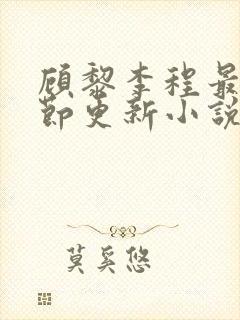 顾黎李程最
节更新小说
莫奚悠